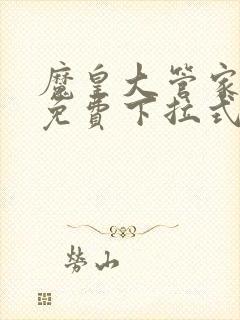 魔皇大管家
免費下拉式
勞山